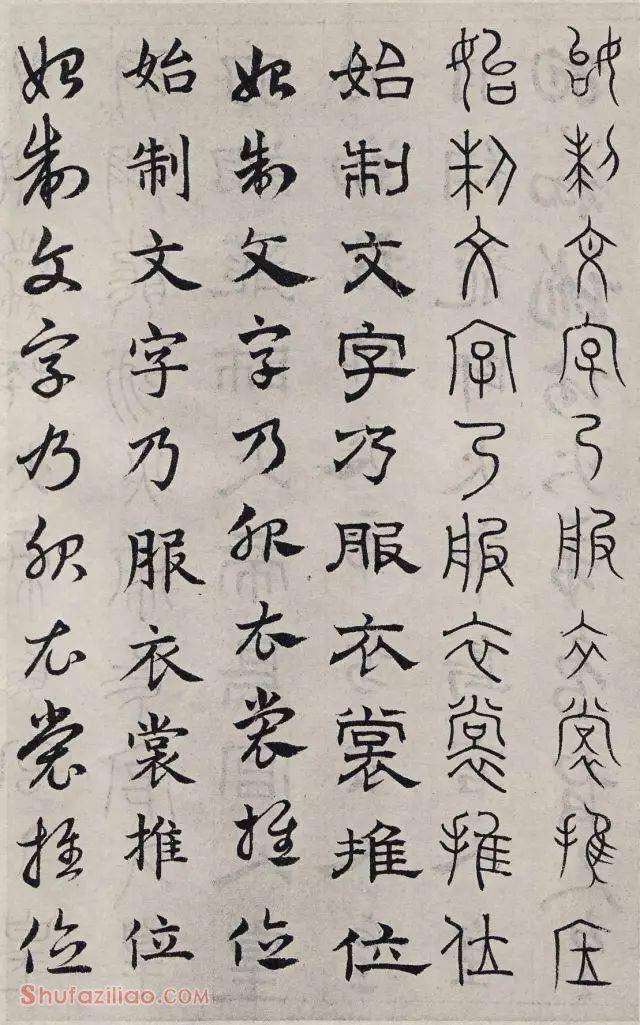 始制文字乃服衣裳推位
始制文字乃服衣裳推位
始制文字乃服衣裳推位
始制文字乃服衣裳推位
始制文字乃服衣裳推位
始制文字乃服衣裳推位
Shufaziliao.COM